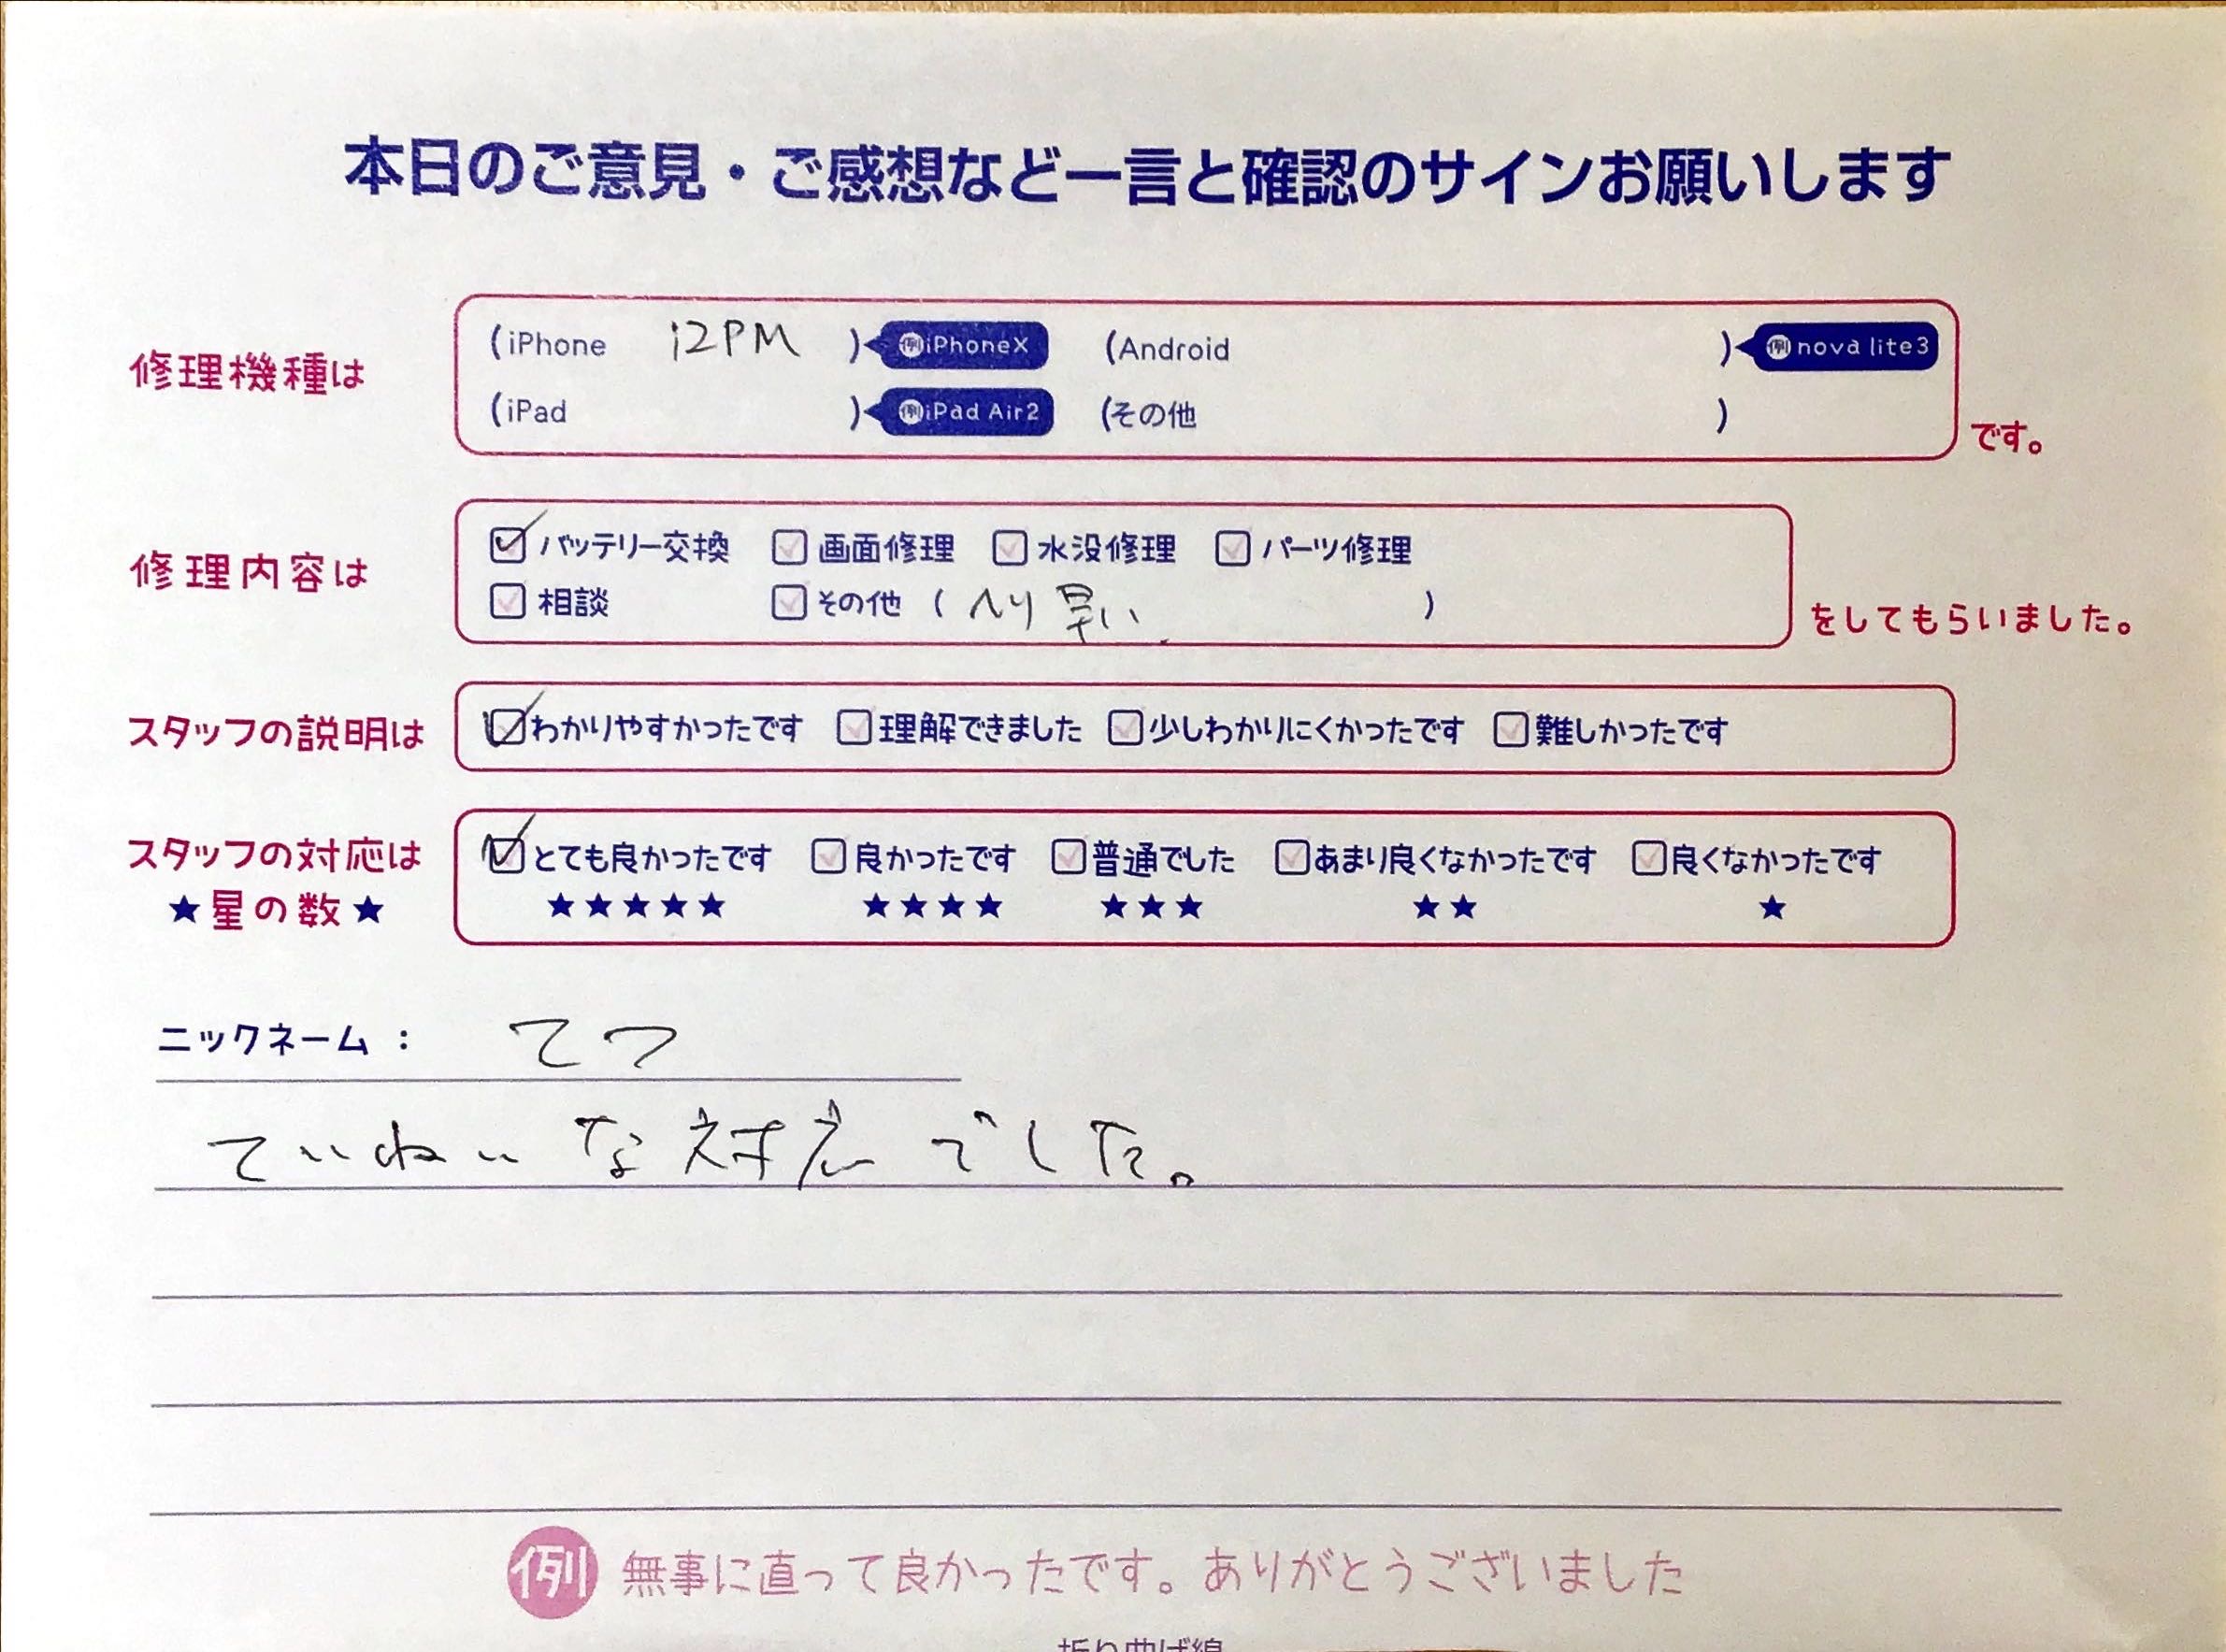 本日のご意見・ご感想など一言と確認のサインお願いします
修理機種は
(iPhone 12PM ) 例iPhoneX (Android ) 例nova lite3
(iPad ) 例iPad Air2 (その他 ) です。
修理内容は
バッテリー交換 画面修理 水没修理 パーツ修理
相談 その他 ( へり早い ) をしてもらいました。
スタッフの説明は わかりやすかったです 理解できました 少しわかりにくかったです 難しかったです
スタッフの対応は とても良かったです 良かったです 普通でした あまり良くなかったです 良くなかったです
★星の数★ ★★★★★ ★★★★ ★★★ ★★ ★
ニックネーム : てつ
ていねいな対応でした。
例 無事に直って良かったです。ありがとうございました
折り曲げ線